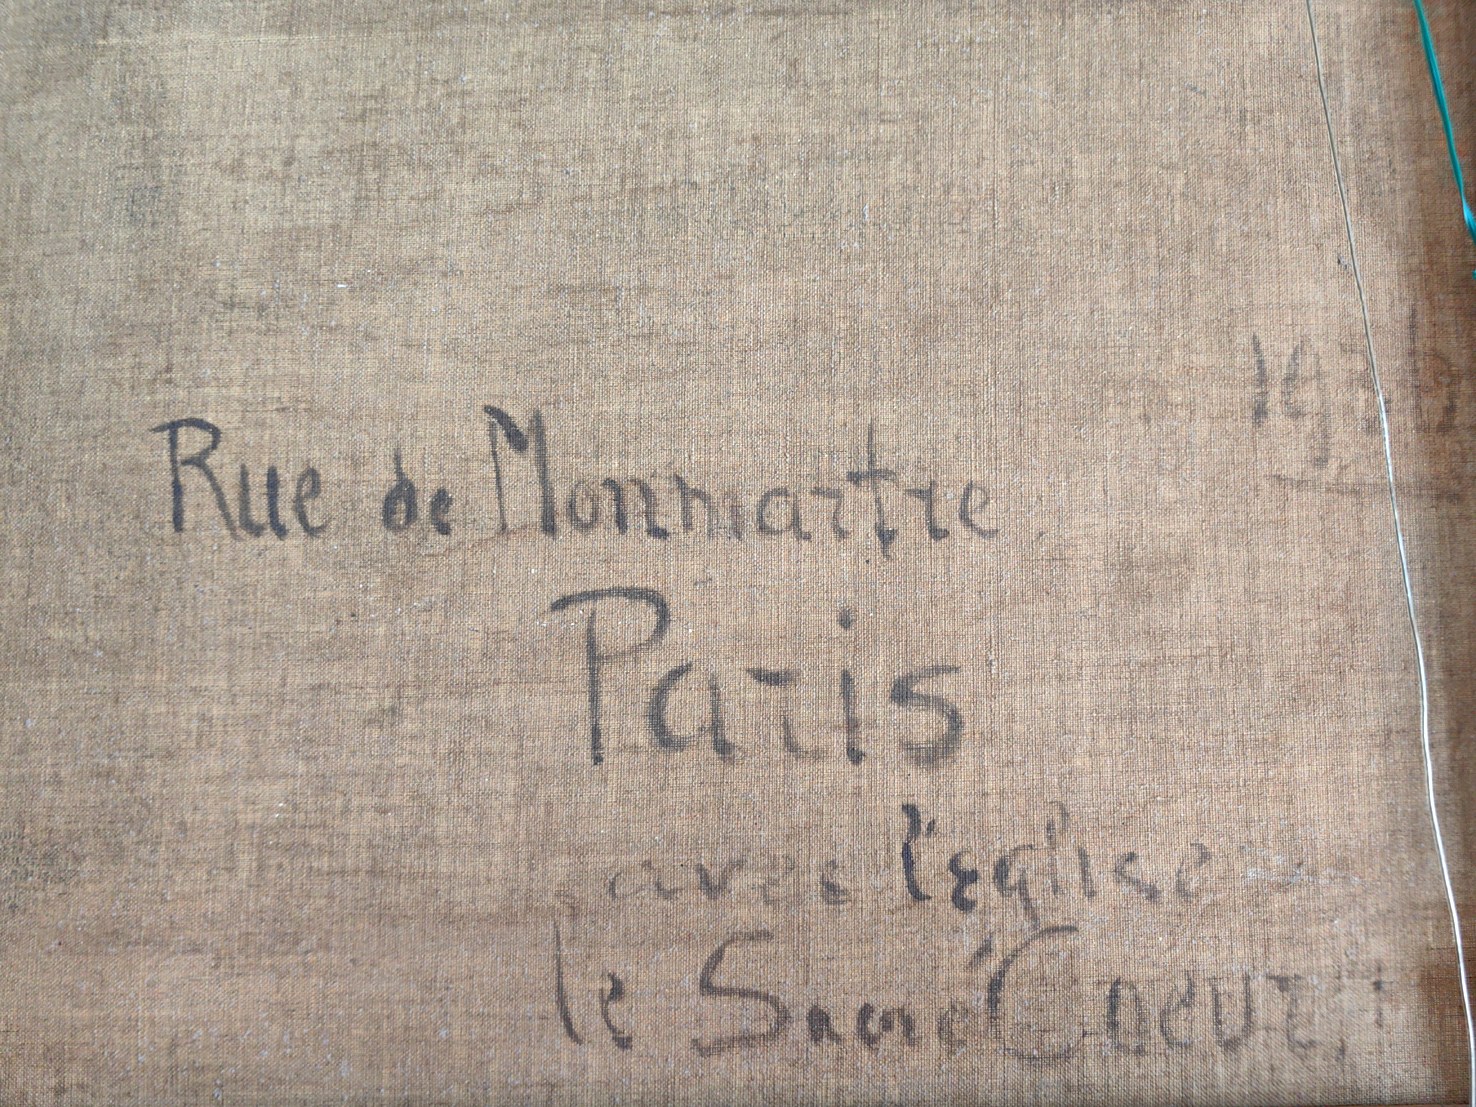 Rue de Monmartre
Paris
avec l'église
le Sacré Coeur